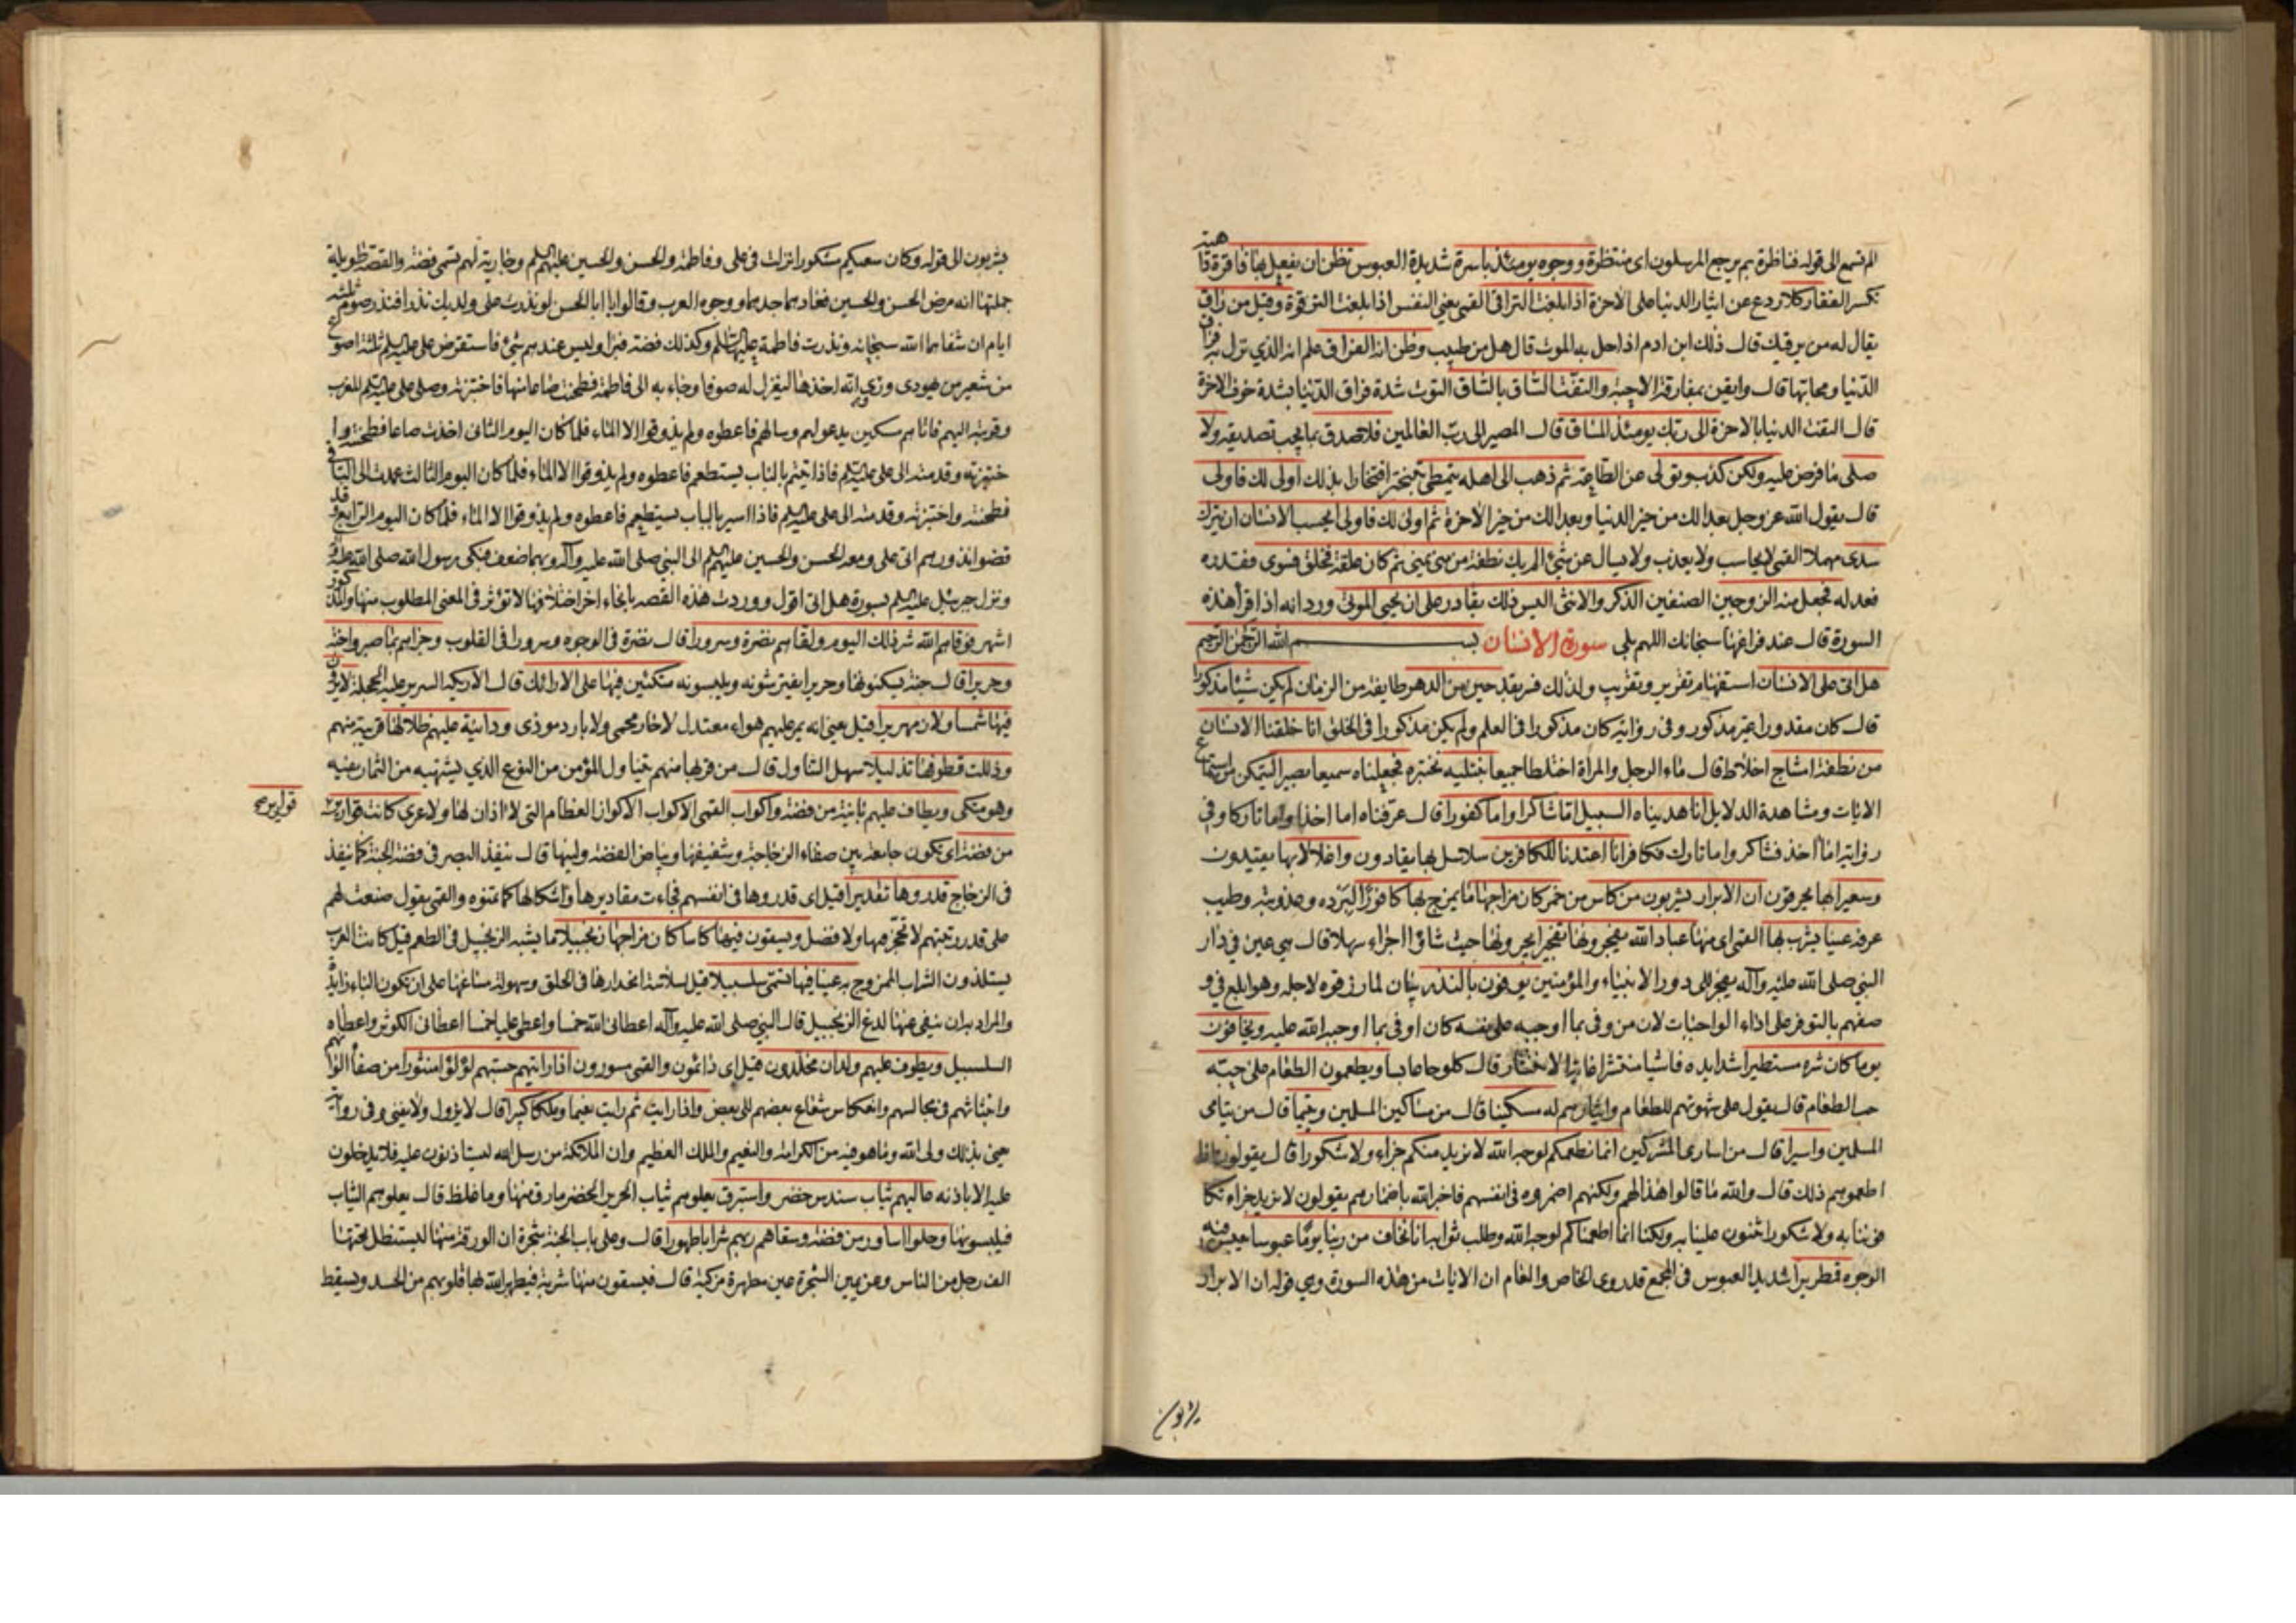 الم تسمع الى قوله فناظرة بم يرجع المرسلون اى منتظرة ووجوه يومئذ باسرة شديدة العبوس تظن ان يفعل بها فاقرة داهية
تكسر الفقار كلا ردع عن ايثار الدنيا على الاخرة اذا بلغت التراقى القمى يعنى النفس اذا بلغت الترقوة وقيل من راق
يقال له من يرقيك قال ذلك ابن ادم اذا حل به الموت قال هل من طبيب وظن انه الفراق علم انه الذي نزل به فراق
الدنيا ومحابها قال وايقن بمفارقة الاحبة والتفت الساق بالساق التوت شدة فراق الدنيا بشدة خوف الاخرة
قال التفت الدنيا بالاخرة الى ربك يومئذ المساق قال المصير الى رب العالمين فلا صدق بما يجب تصديقه ولا
صلى ما فرض عليه ولكن كذب وتولى عن الطاعة ثم ذهب الى اهله يتمطى يتبختر افتخارا بذلك اولى لك فاولى
قال يقول الله عز وجل بعدا لك من خير الدنيا وبعدا لك من خير الاخرة ثم اولى لك فاولى ايحسب الانسان ان يترك
سدى مهملا القمى لا يحاسب ولا يعذب ولا يسال عن شئ الم يك نطفة من منى يمنى ثم كان علقة فخلق فسوى فقدره
فعدله فجعل منه الزوجين الصنفين الذكر والانثى اليس ذلك بقادر على ان يحيى الموتى ورد انه اذا قرأ هذه
السورة قال عند فراغها سبحانك اللهم بلى سورة الانسان بسم الله الرحمن الرحيم
هل اتى على الانسان استفهام تقرير وتقريب ولذلك فسر بقد حين من الدهر طايفة من الزمان لم يكن شيئا مذكورا
قال كان مقدورا غير مذكور وفى رواية كان مذكورا فى العلم ولم يكن مذكورا فى الخلق انا خلقنا الانسان
من نطفة امشاج اخلاط قال ماء الرجل والمراة اختلطا جميعا نبتليه نختبره فجعلناه سميعا بصيرا ليتمكن من استماع
الايات ومشاهدة الدلايل انا هديناه السبيل اما شاكرا واما كفورا قال عرفناه اما اخذا واما تاركا وفي
رواية اما اخذ فشاكر واما تارك فكافر انا اعتدنا للكافرين سلاسل بها يقادون واغلالا بها يقيدون
وسعيرا بها يحرقون ان الابرار يشربون من كاس من خمر كان مزاجها ما يمزج بها كافورا لبرده وعذوبته وطيب
عرفه عينا يشرب بها القمى اى منها عباد الله يفجرونها تفجيرا يجرونها حيث شاؤا اجراء سهلا قال هى عين في دار
النبي صلى الله عليه وآله يفجر الى دور الانبياء والمؤمنين يوفون بالنذر بيان لما رزقوه لاجله وهو ابلغ في و
صفهم بالتوفر على اداء الواجبات لان من وفى بما اوجبه على نفسه كان اوفى بما اوجبه الله عليه ويخافون
يوما كان شره مستطيرا شدايده فاشيا منتشرا غاية الانتشار قال كلوحا عابسا ويطعمون الطعام على حبه
حب الطعام قال يقول على شهوتهم للطعام وايثارهم له مسكينا قال من مساكين المسلمين ويتيما قال من يتامى
المسلمين واسيرا قال من اسارى المشركين انما نطعمكم لوجه الله لا نريد منكم جزاء ولا شكورا قال يقولون اذا
اطعموهم ذلك قال والله ما قالوا هذا لهم ولكنهم اضمروه فى انفسهم فاخبر الله باضمارهم يقولون لا نريد جزاء تكا
فوننا به ولا شكورا تثنون علينا به ولكنا انما اطعمناكم لوجه الله وطلب ثوابه انا نخاف من ربنا يوما عبوسا تعبس فيه
الوجوه قمطريرا شديد العبوس فى المجمع قد روى الخاص والعام ان الايات من هذه السورة وهي قوله ان الابرار
يشربون
يشربون الى قوله وكان سعيكم مشكورا نزلت فى على وفاطمة والحسن والحسين عليهم السلم وجارية لهم تسمى فضة والقصة طويلة
جملتها انه مرض الحسن والحسين فعادهما جدهما ووجوه العرب وقالوا يا ابا الحسن لو نذرت على ولديك نذرا فنذر صوم ثلثة
ايام ان شفاهما الله سبحانه ونذرت فاطمة عليها السلم وكذلك فضة فبرا وليس عندهم شئ فاستقرض على عليه السلم ثلثة اصوع
من شعير من يهودى وروى انه اخذها ليغزل له صوفا وجاء به الى فاطمة فطحنت صاعا منها فاختبزته وصلى على عليه السلم المغرب
وقربته اليهم فاتاهم مسكين يدعو لهم وسالهم فاعطوه ولم يذوقوا الا الماء فلما كان اليوم الثانى اخذت صاعا فطحنته وا
ختبزته وقدمته الى على عليه السلم فاذا يتيم بالباب يستطعم فاعطوه ولم يذوقوا الا الماء فلما كان اليوم الثالث عمدت الى الباقى
فطحنته واختبزته وقدمته الى على عليه السلم فاذا اسير بالباب يستطعم فاعطوه ولم يذوقوا الا الماء فلما كان اليوم الرابع وقد
قضوا نذورهم اتى على ومعه الحسن والحسين عليهم السلم الى النبي صلى الله عليه وآله وبهما ضعف فبكى رسول الله صلى الله عليه وآله
ونزل جبرئيل عليه السلم بسورة هل اتى اقول ووردت هذه القصه بانحاء اخر اختلافها لا تؤثر فى المعنى المطلوب منها والمذكور
اشهر فوقاهم الله شر ذلك اليوم ولقاهم نضرة وسرورا قال نضرة فى الوجوه وسرورا فى القلوب وجزاهم بما صبروا جنة
وحريرا قال جنة يسكنونها وحريرا يفترشونه ويلبسونه متكئين فيها على الارائك قال الاريكة السرير عليه الحجلة لا يرون
فيها شمسا ولا زمهريرا قيل يعنى انه يمر عليهم هواء معتدل لا حار محمى ولا بارد موذى ودانية عليهم ظلالها قريبة منهم
وذللت قطوفها تذليلا سهل التناول قال من قربها منهم يتناول المؤمن من النوع الذي يشتهيه من الثمار بفيه
وهو متكى ويطاف عليهم بانية من فضة واكواب القمى الاكواب الاكواز العظام التى لا اذان لها ولا عرى كانت قواريرا
قوارير صح
من فضة اى تكون جامعة بين صفاء الزجاجة وشفيفها وبياض الفضة ولينها قال ينفذ البصر فى فضة الجنة كما ينفذ
فى الزجاج قدروها تقديرا قيل اى قدروها فى انفسهم فجاءت مقاديرها واشكالها كما تمنوه والقمى يقول صنعت لهم
على قدر رتبتهم لا تحجز فيها ولا فضل ويسقون فيها كاسا كان مزاجها زنجبيلا ما يشبه الزنجبيل فى الطعم قيل كانت العرب
يستلذون الشراب الممزوج به عينا فيها تسمى سلسبيلا قيل لسلاسة انحدارها فى الحلق وسهولة مساغها على ان تكون الباء زايدة
والمراد به ان ينفى عنها لدغ الزنجبيل قال النبي صلى الله عليه وآله اعطانى الله خمسا واعطى عليا خمسا اعطانى الكوثر واعطاه
السلسبيل ويطوف عليهم ولدان مخلدون قيل اى دائمون والقمى مسورون اذا رايتهم حسبتهم لؤلؤا منثورا من صفاء الوانهم
وانبثاثهم فى مجالسهم وانعكاس شعاع بعضهم الى بعض واذا رايت ثم رايت نعيما وملكا كبيرا قال لا يزول ولا يفنى وفى رواية
يعنى بذلك ولى الله وما هو فيه من الكرامة والنعيم والملك العظيم وان الملائكة من رسل الله ليستاذنون عليه فلا يدخلون
عليه الا باذنه عاليهم ثياب سندس خضر واستبرق يعلوهم ثياب الحرير الخضر ما رق منها وما غلظ قال يعلوهم الثياب
فيلبسونها وحلوا اساور من فضة وسقاهم ربهم شرابا طهورا قال وعلى باب الجنة شجرة ان الورقة منها ليستظل تحتها
الف رجل من الناس وعن يمين الشجرة عين مطهرة مزكية قال فيسقون منها شربة فيطهر الله بها قلوبهم من الحسد ويسقط